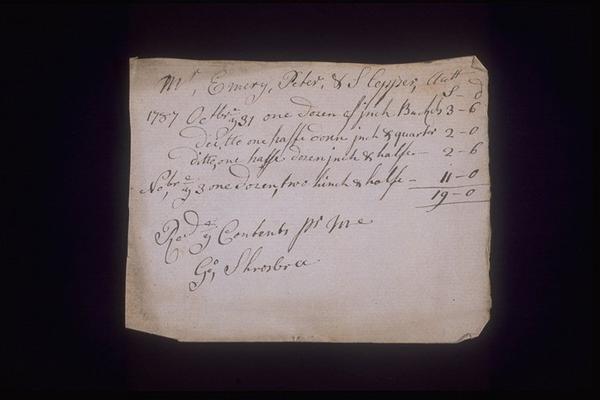 Mr, Emery, Peter, & Slopper, Acctt
S D
1787 Octbre ye 31 one dozen of inch Buckls 3-6
Dei,tto one halfe dozn inch & quartr 2-0
ditto, one halfe dozen inch & halfe - 2-6
Nobre, ye 3 one dozen, two hinch & halfe - 11-0
19-0
Recd ye Contents pr me
Geo, Shrosbree